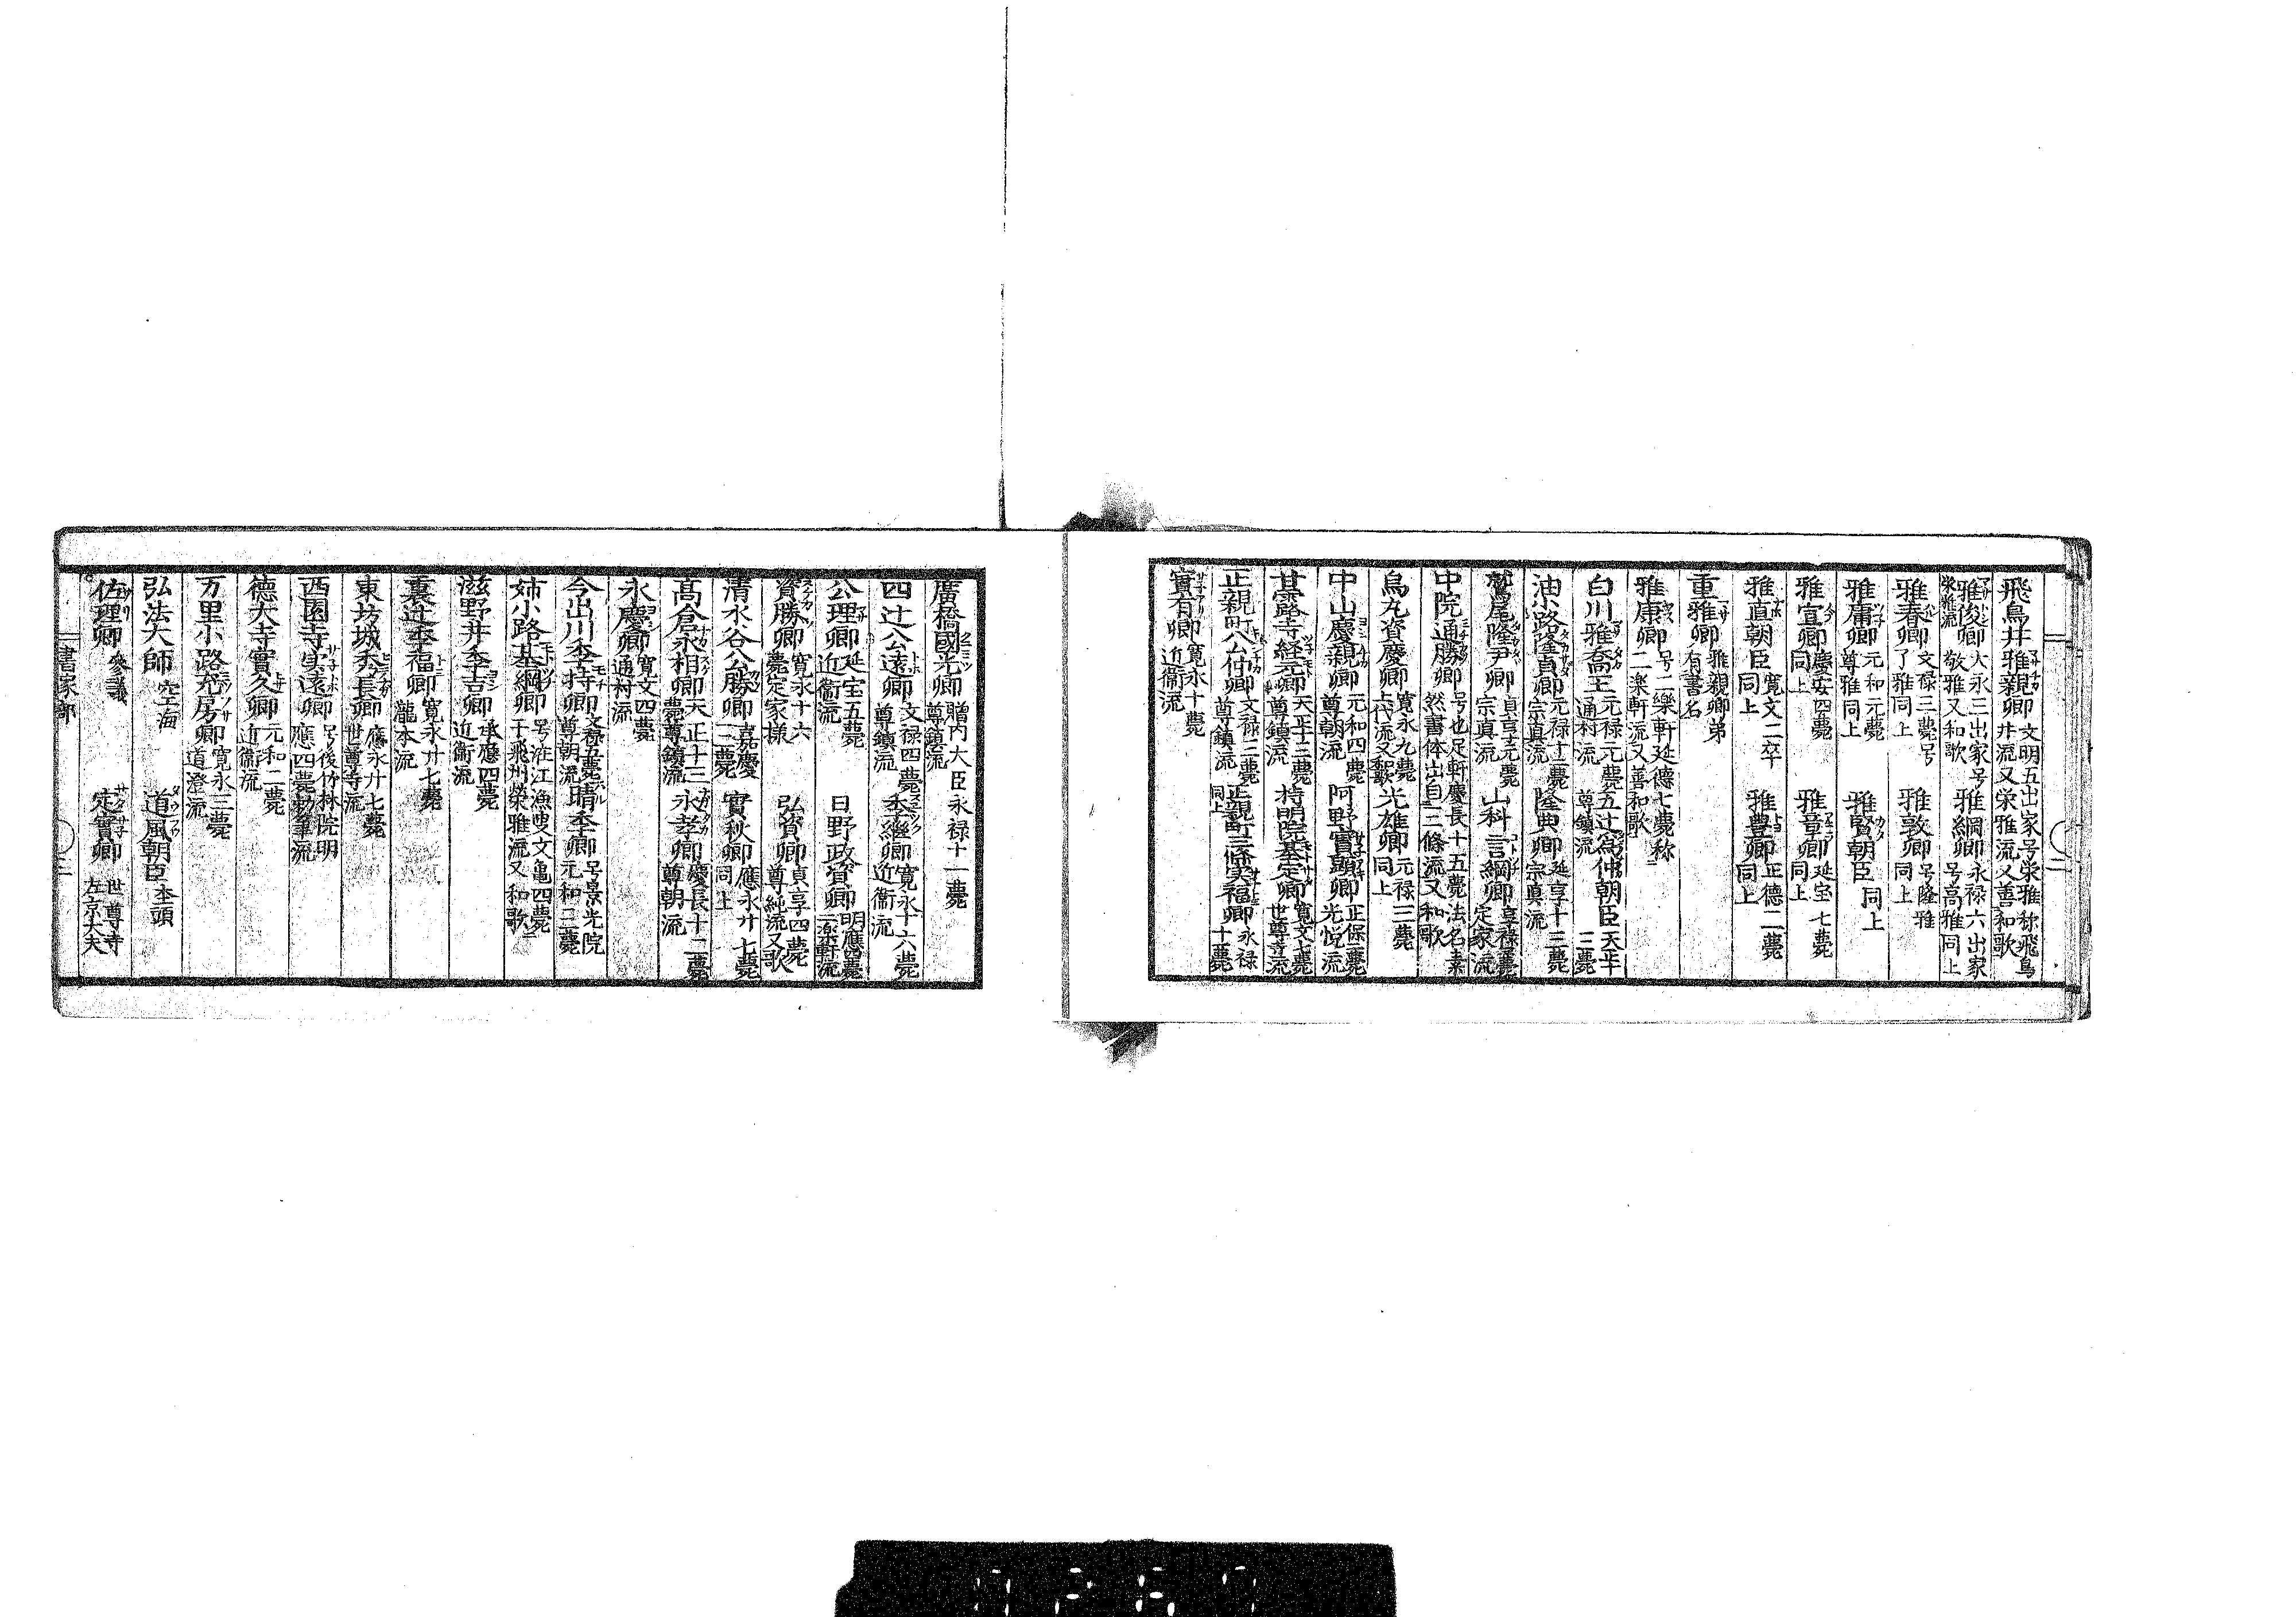 飛鳥井雅親卿 文明五出家号栄雅称飛鳥井流又栄雅流又善和歌
雅俊卿 大永三出家号敬雅又和歌栄雅流 雅綱卿 永禄六出家号高雅同上
雅春卿 文禄三薨号了雅同上 雅敦卿 号隆雅同上
雅庸卿 元和元薨尊雅同上 雅賢朝臣 同上
雅宣卿 慶安四薨同上 雅章卿 延宝七薨同上
雅直朝臣 寛文二卒同上 雅豊卿 正徳二薨同上
重雅卿 雅親卿弟有書名
雅康卿 号二楽軒延徳七薨称二楽軒流又善和歌
白川雅喬王 元禄元薨通村流 五辻為仲朝臣 天正三薨尊鎮流
油小路隆貞卿 元禄十二薨宗真流 隆典卿 延享十三薨宗真流
鷲尾隆尹卿 貞享元薨宗真流 山科言綱卿 享禄三薨定家流
中院通勝卿 号也足軒慶長十五薨法名素然書体出自二條流又和歌
烏丸資慶卿 寛永九薨上代流又歌 光雄卿 元禄三薨同上
中山慶親卿 元和四薨尊朝流 阿野實顕卿 正保二薨光悦流
甘露寺経元卿 天正十三薨尊鎮流 持明院基定卿 寛文七薨世尊寺流
正親町公仲卿 文禄三薨尊鎮流 正親町三條実福卿 永禄十薨同上
實有卿 寛永十薨近衛流
廣橋國光卿 贈内大臣永禄十一薨尊鎮流
四辻公遠卿 文禄四薨尊鎮流 季継卿 寛永十六薨近衛流
公理卿 延宝五薨近衛流 日野政資卿 明應四薨二楽軒流
資勝卿 寛永十六薨定家様 弘資卿 貞享四薨尊純流又歌
清水谷公勝卿 嘉慶二薨 實秋卿 應永廿七薨同上
髙倉永相卿 天正十三薨尊鎮流 永孝卿 慶長十二薨尊朝流
永慶卿 寛文四薨通村流
今出川季持卿 文禄五薨尊朝流 晴季卿 号景光院元和三薨
姉小路基綱卿 号淮江漁叟文亀四薨于飛州榮雅流又和歌
滋野井季吉卿 承應四薨近衛流
裏辻季福卿 寛永廿七薨瀧本流
東坊城秀長卿 應永廿七薨世尊寺流
西園寺実遠卿 号後竹林院明應四薨勅筆流
德大寺實久卿 元和二薨近衛流
万里小路充房卿 寛永三薨道澄流
弘法大師 空海 道風朝臣 木工頭
佐理卿 參議 定實卿 世尊寺左京大夫
書家部
二
三